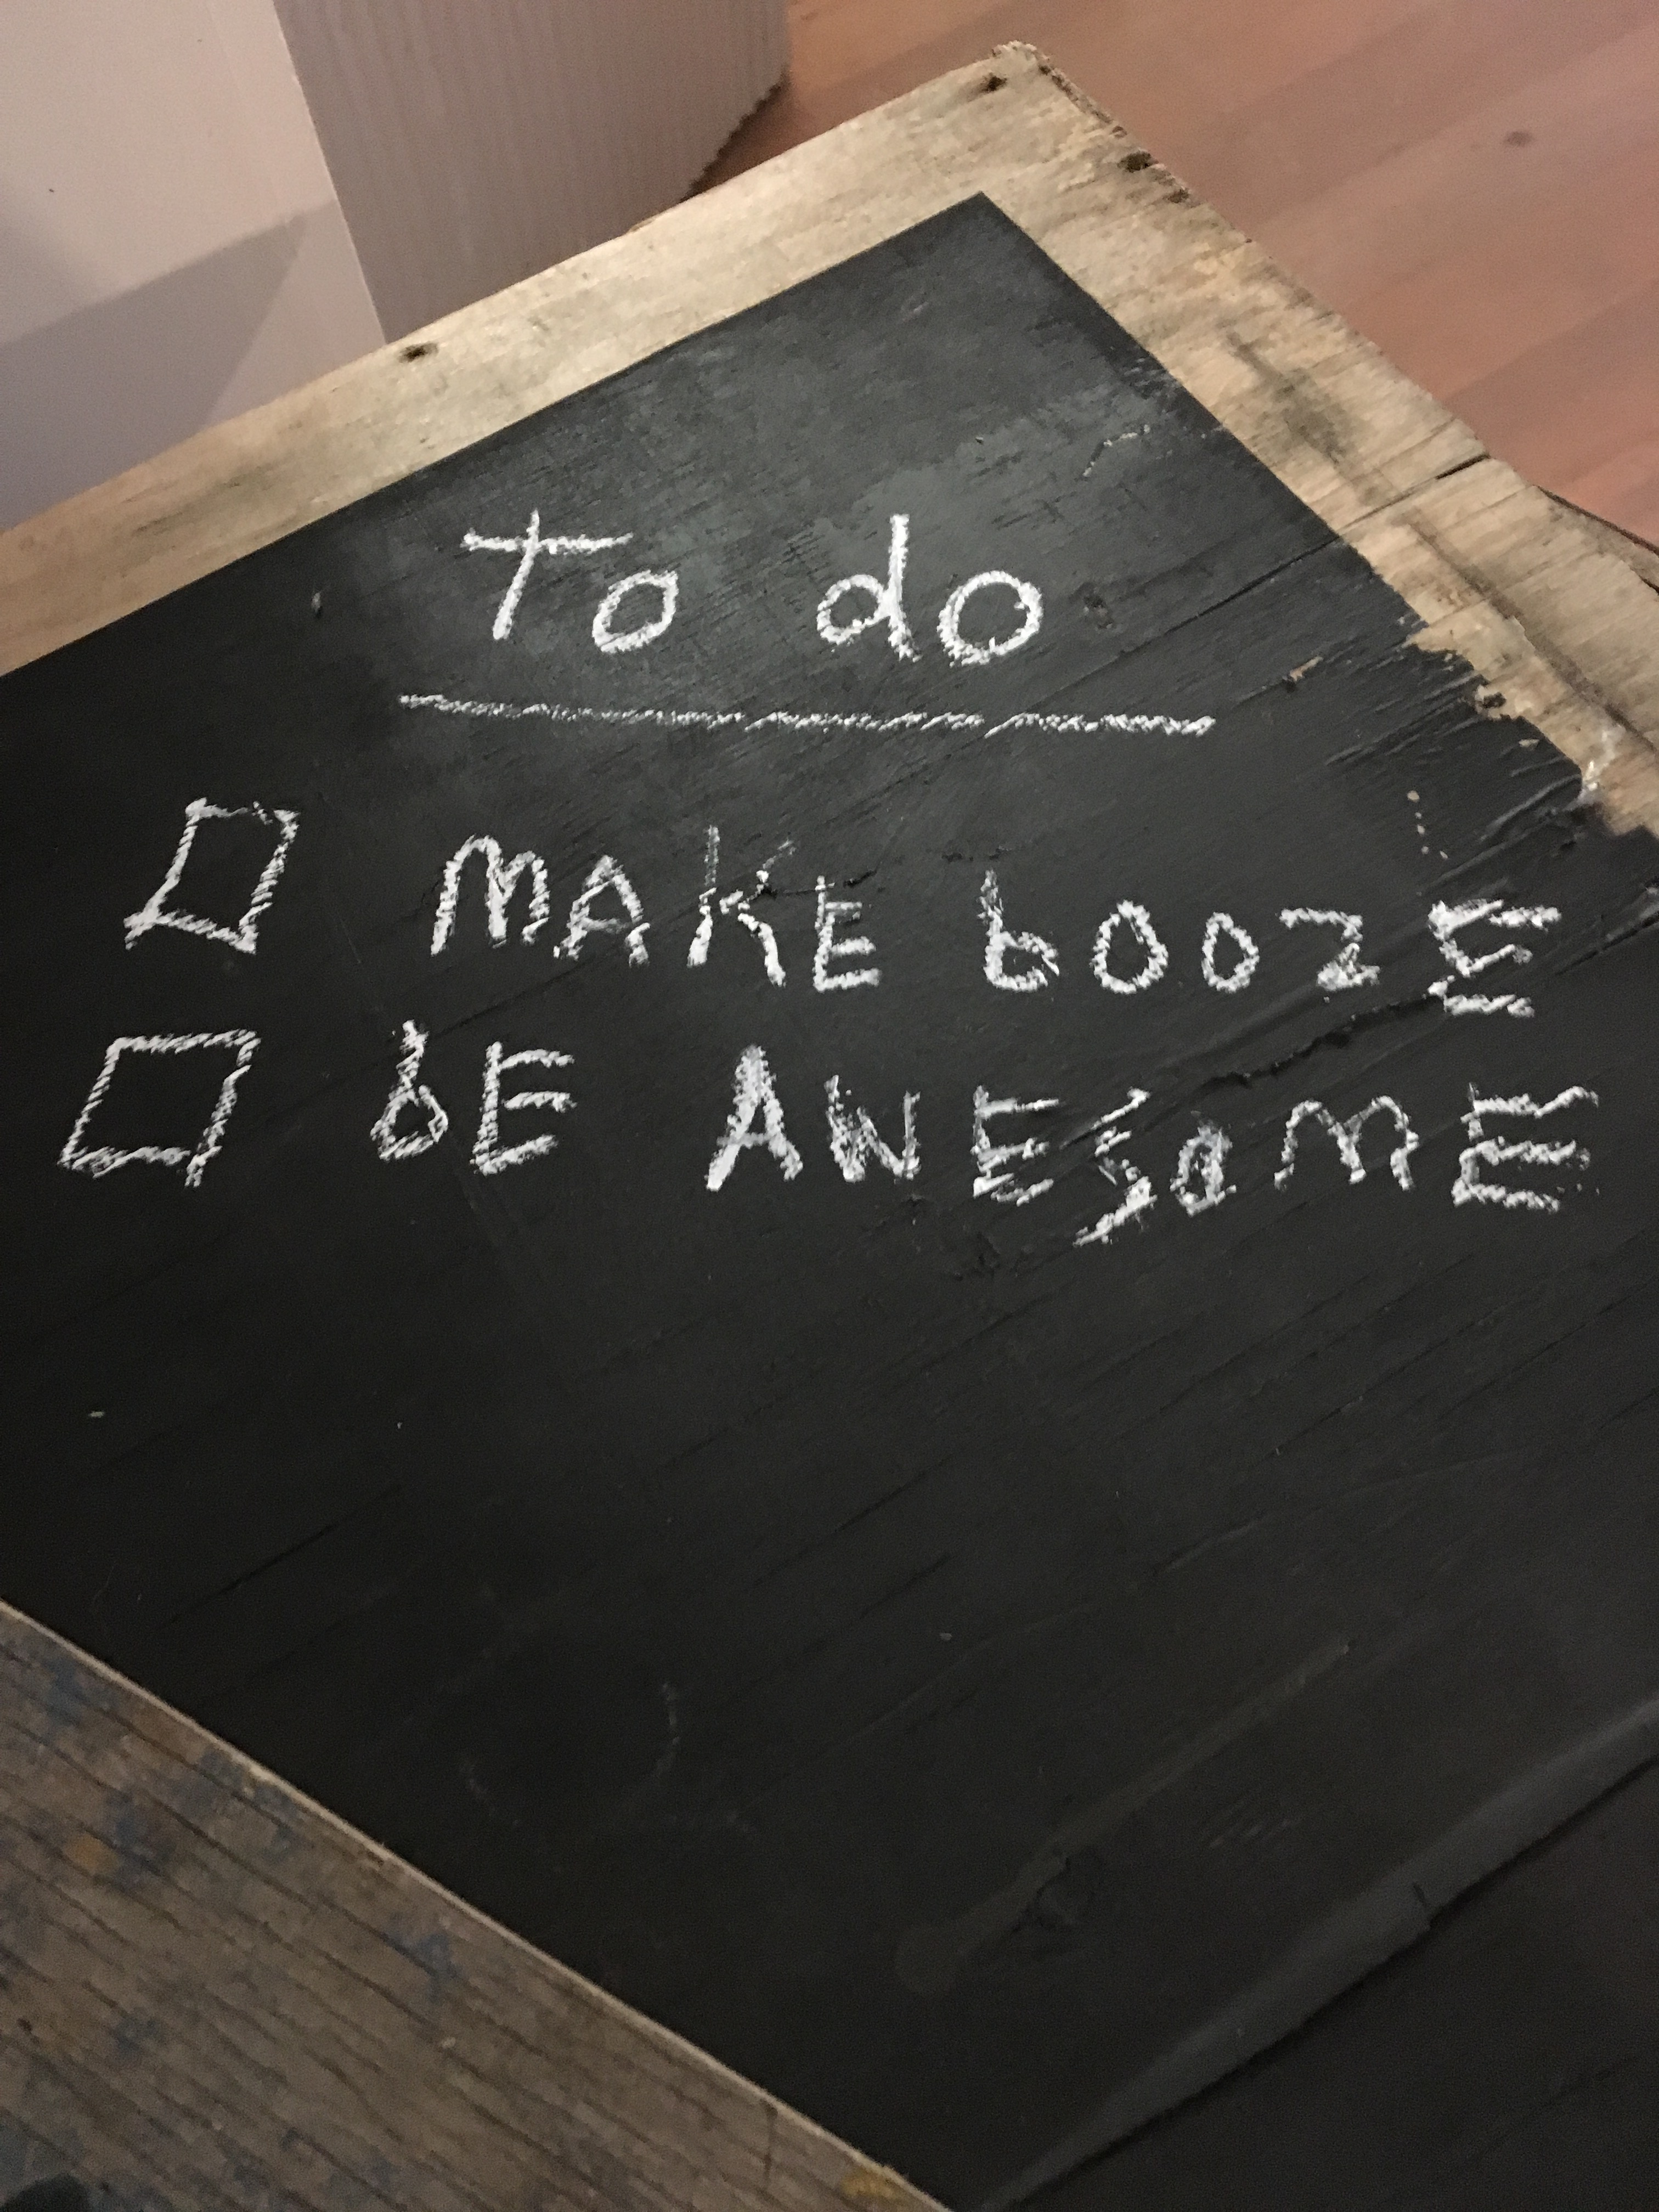 To do
MAKE booZE
bE AWESoME